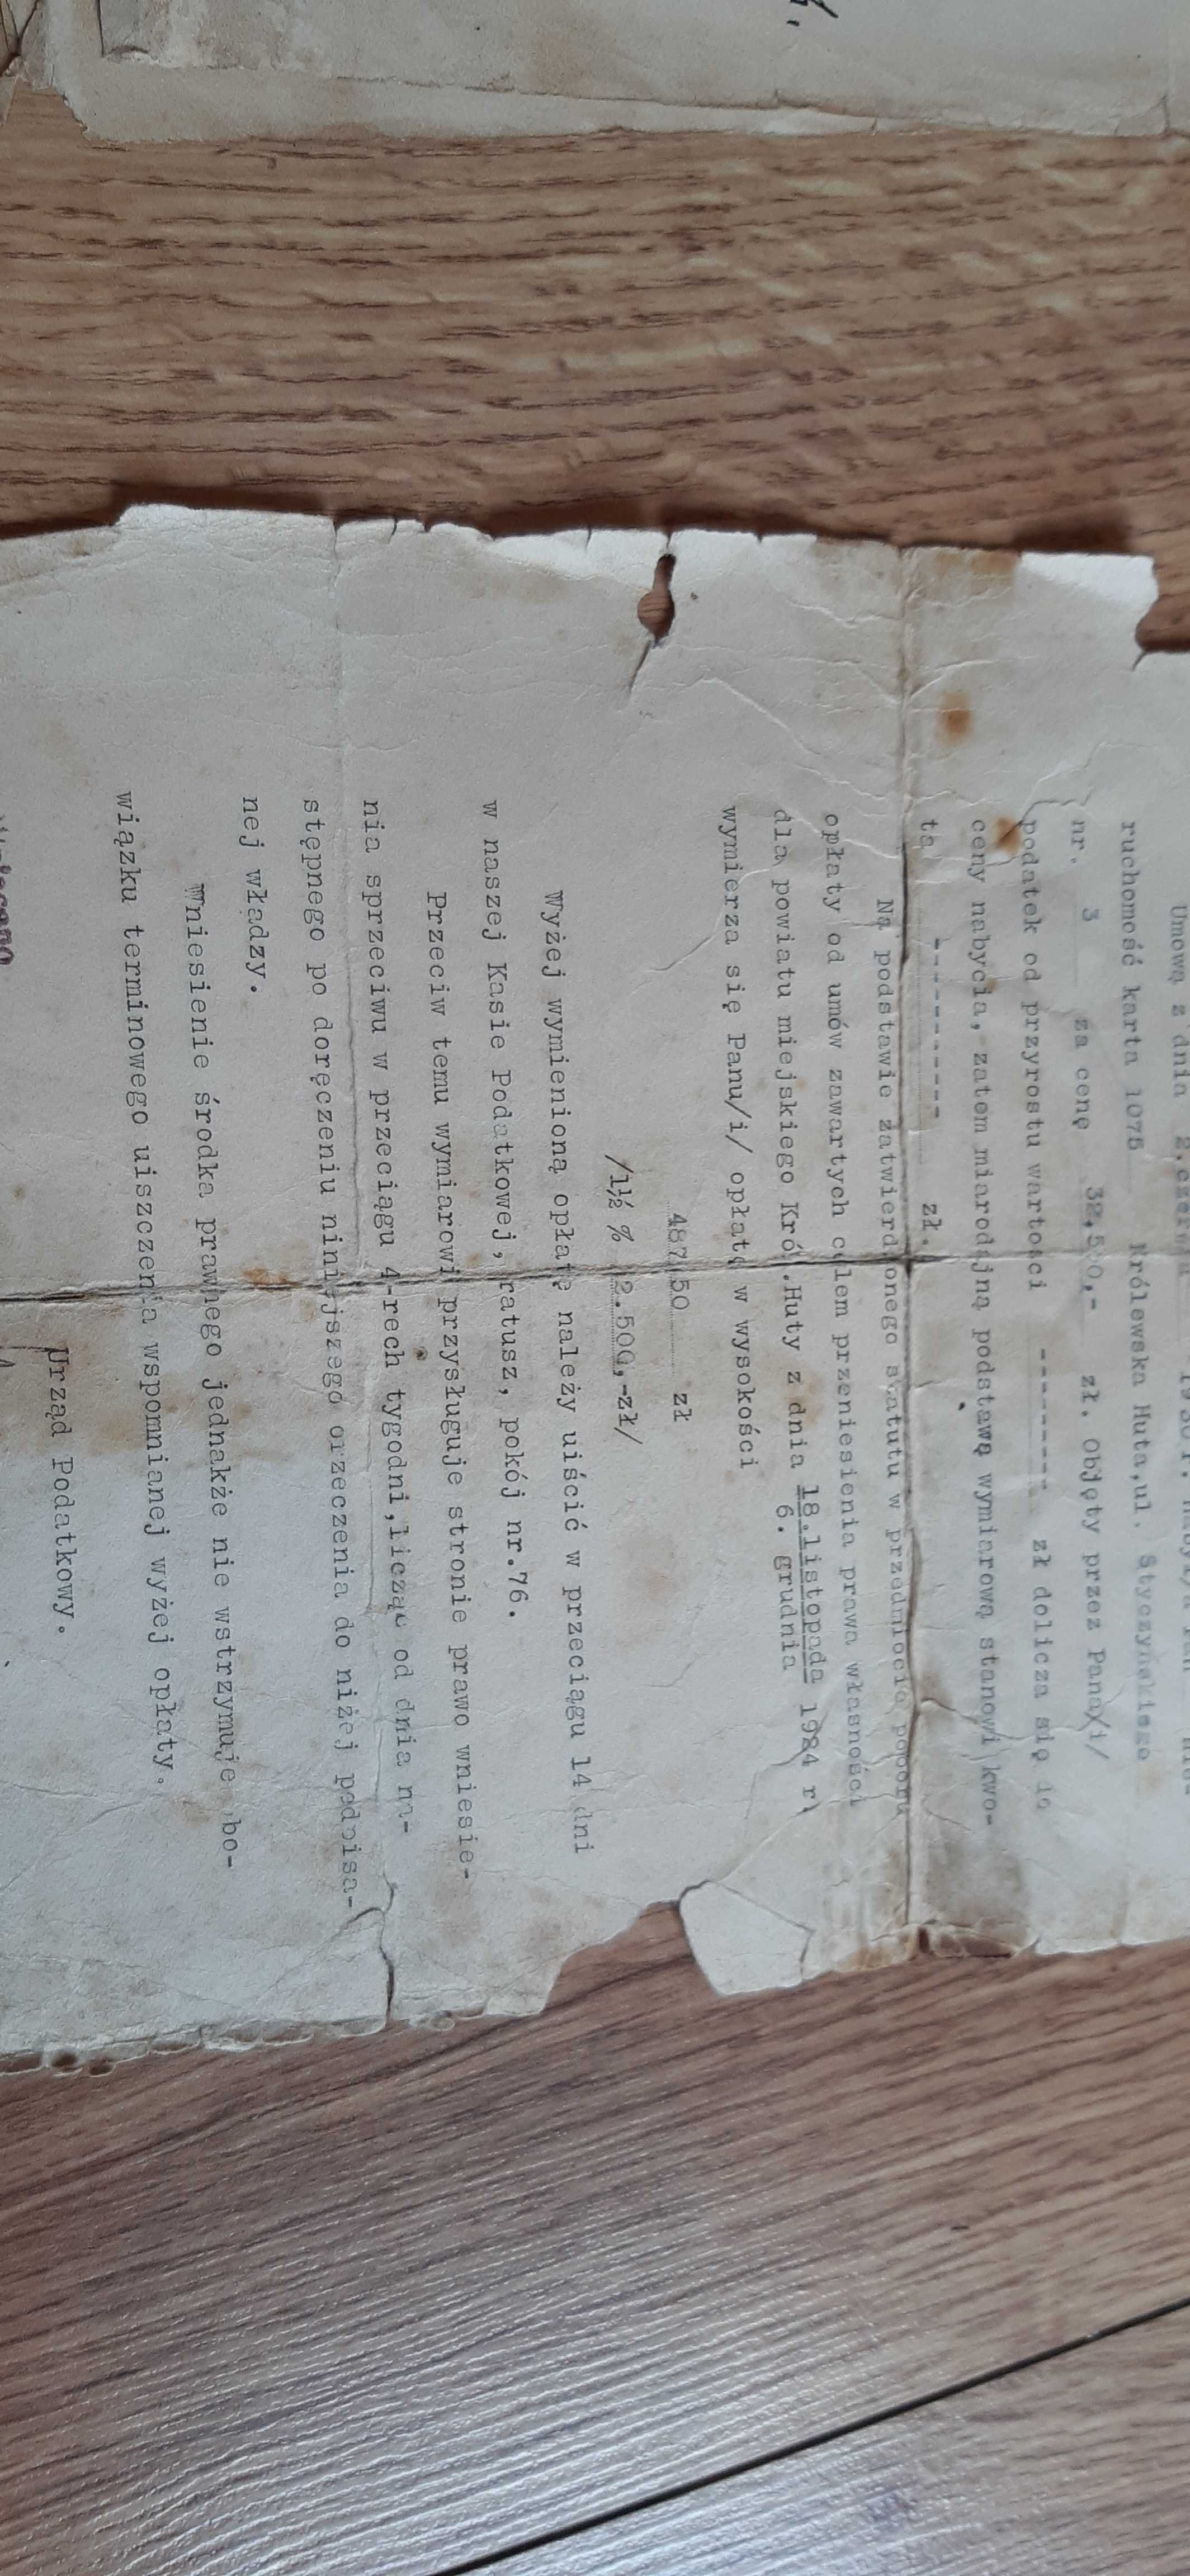 Umową z dnia 2.
ruchomość karta 1075 Królewska Huta,ul. Styczyńskiego
nr. 3 za cenę 32,5 0,- zł. Objęty przez Pana/i/
podatek od przyrostu wartości --------- zł dolicza się do
ceny nabycia, zatem miarodajną podstawą wymiarową stanowi kwo-
ta ---------- zł.
Na podstawie zatwierdzonego statutu w przedmiocie poboru
opłaty od umów zawartych celem przeniesienia prawa własności
dla powiatu miejskiego Kró .Huty z dnia 18.listopada 1924 r
6. grudnia
wymierza się Panu/i/ opłatę w wysokości
487,50 zł
/1½ % 2.500,-zł/
Wyżej wymienioną opłatę należy uiścić w przeciągu 14 dni
w naszej Kasie Podatkowej, ratusz, pokój nr.76.
Przeciw temu wymiarowi przysługuje stronie prawo wniesie-
nia sprzeciwu w przeciągu 4-rech tygodni,licząc od dnia na-
stępnego po doręczeniu niniejszego orzeczenia do niżej podpisa-
nej władzy.
Wniesienie środka prawnego jednakże nie wstrzymuje obo-
wiązku terminowego uiszczenia wspomnianej wyżej opłaty.
Urząd Podatkowy.